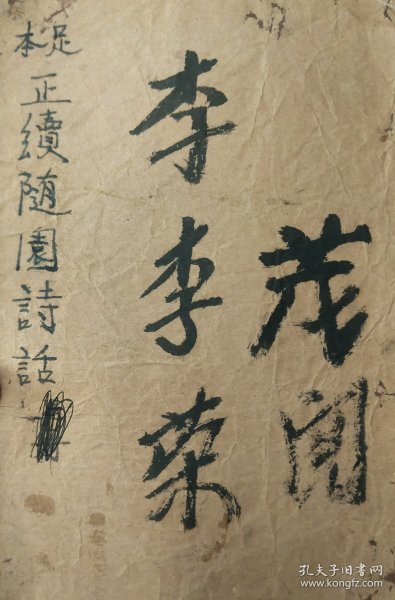 茂闻
李李荣
足本
正續随園詩話
孔夫子旧书网
www.kongfz.com